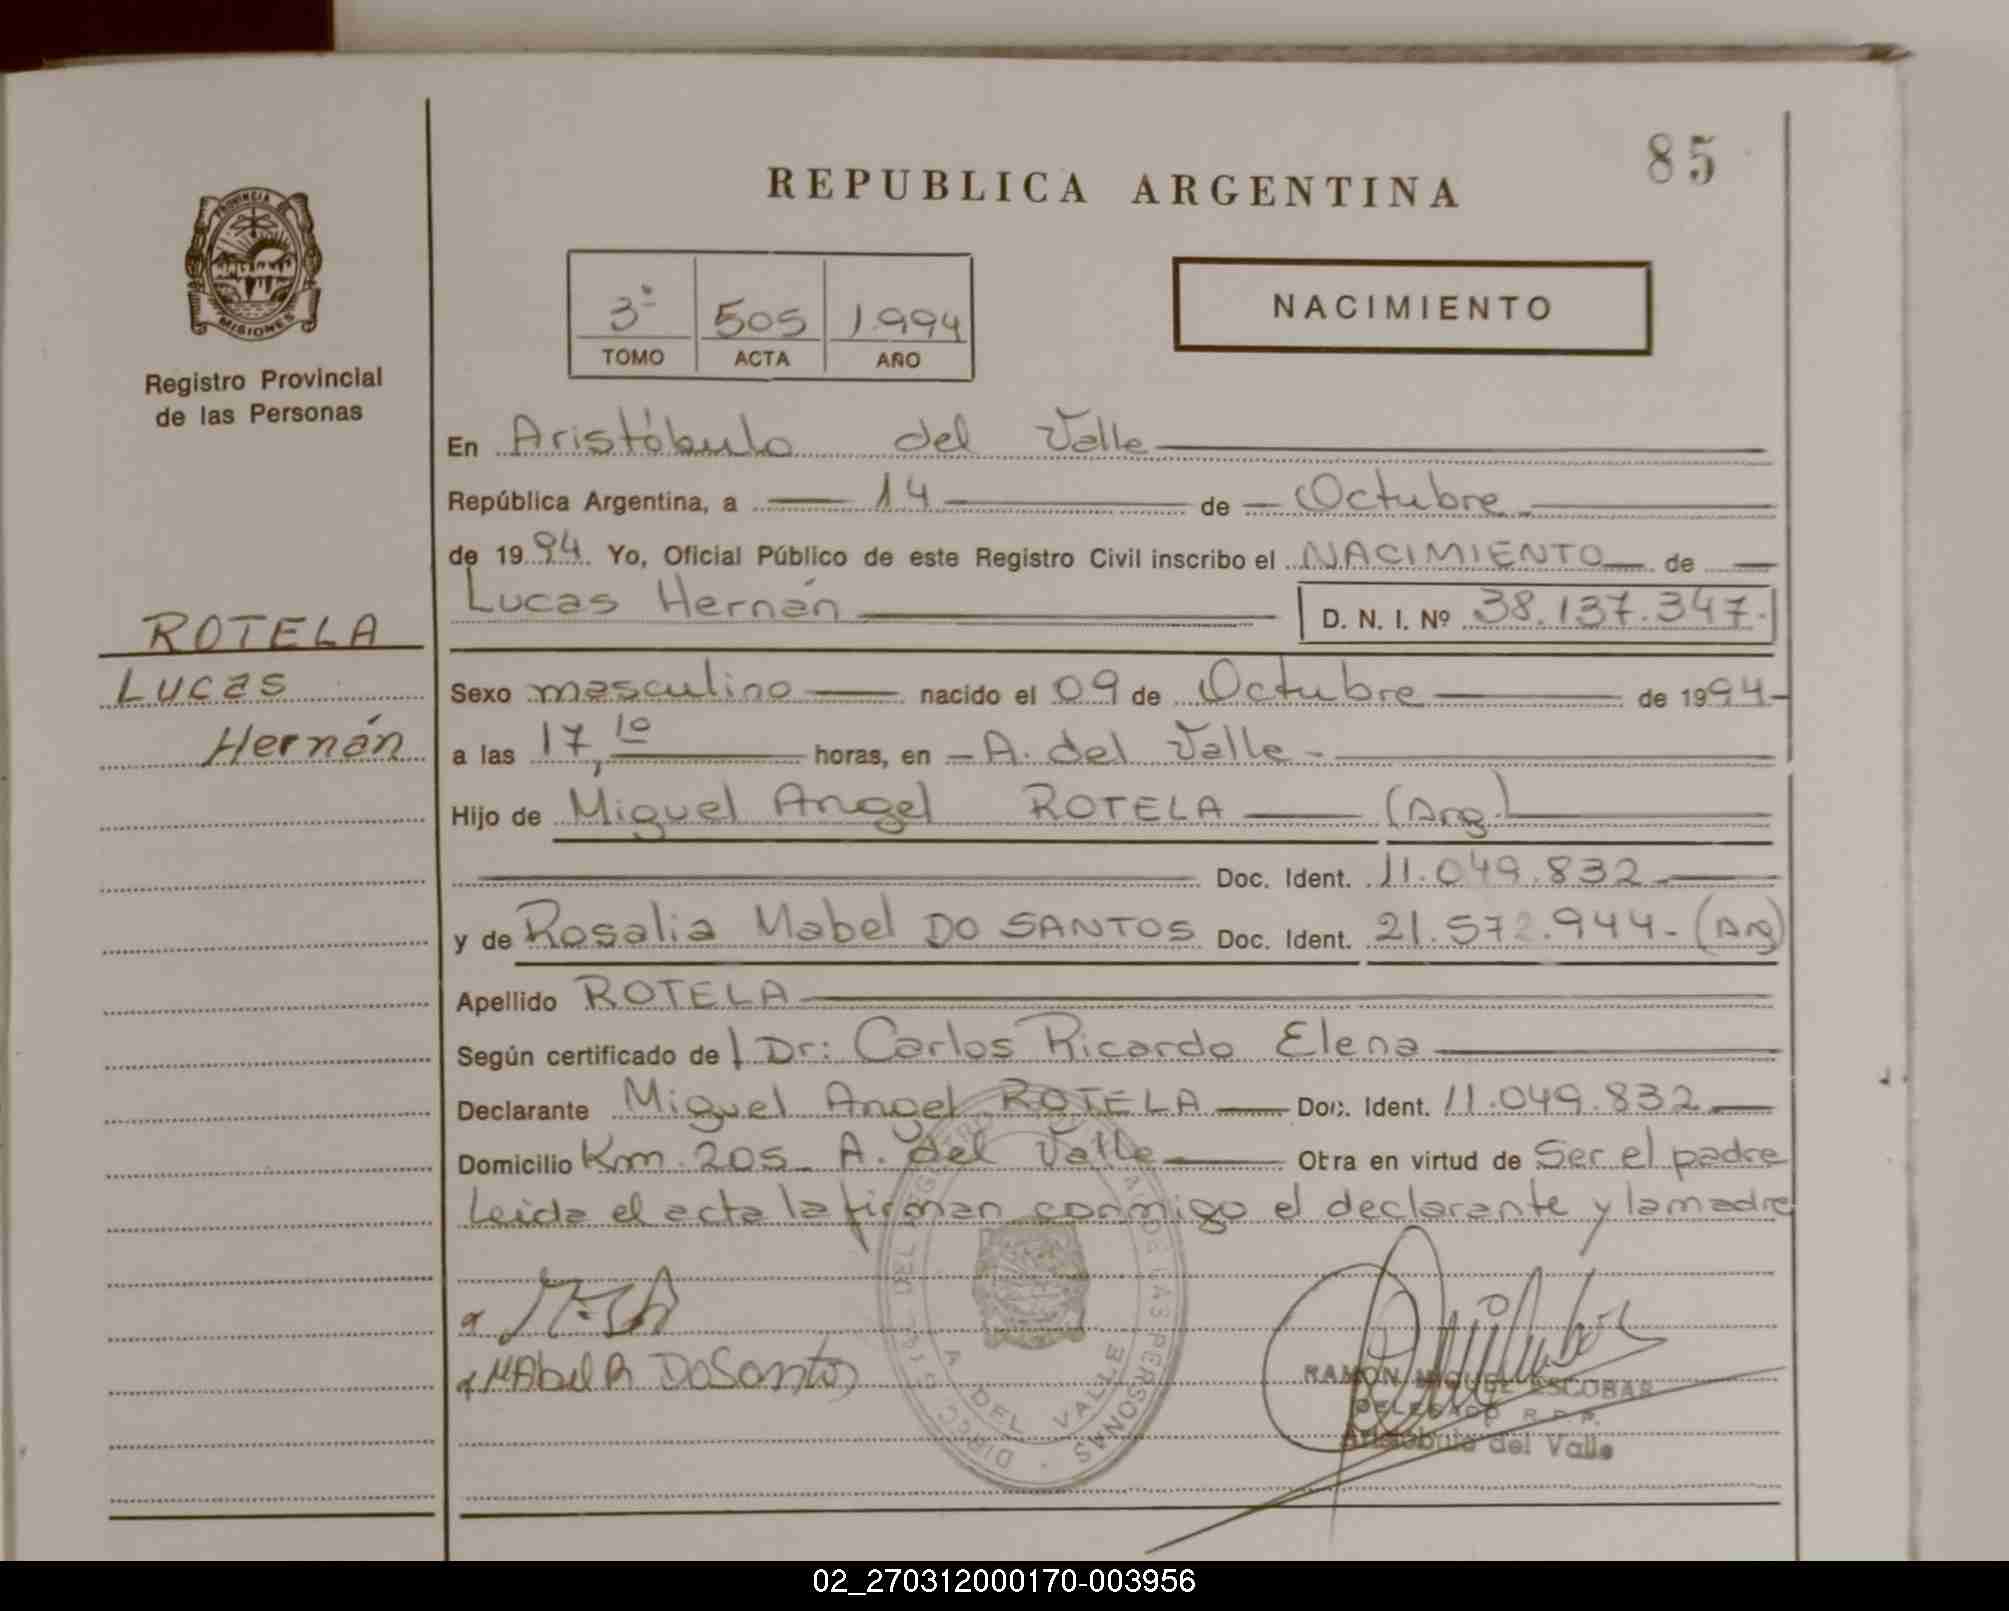 85
REPUBLICA ARGENTINA
PROVINCIA DE
MISIONES
Registro Provincial
de las Personas
3º 505 1.994
TOMO ACTA AÑO
NACIMIENTO
En Aristóbulo del Valle
República Argentina, a 14 de Octubre
de 19 94. Yo, Oficial Público de este Registro Civil inscribo el NACIMIENTO de
Lucas Hernán D. N. I. Nº 38.137.347.
ROTELA
Lucas
Hernán
Sexo masculino nacido el 09 de Octubre de 19 94-
a las 17,10 horas, en - A. del Valle -
Hijo de Miguel Angel ROTELA (Arg.)
Doc. Ident. 11.049.832
y de Rosalia Mabel DO SANTOS Doc. Ident. 21.572.944- (Arg)
Apellido ROTELA
Según certificado de Dr: Carlos Ricardo Elena
Declarante Miguel Angel ROTELA Doc. Ident. 11.049.832
Domicilio Km. 205 A. del Valle Otra en virtud de Ser el padre
Leida el acta la firman conmigo el declarante y la madre
MAbel R DoSantos
A. DEL VALLE
DE LAS PERSONAS
RAMON MIGUEL ESCOBAR
DELEGADO R.P.P.
Aristóbulo del Valle
02_270312000170-003956